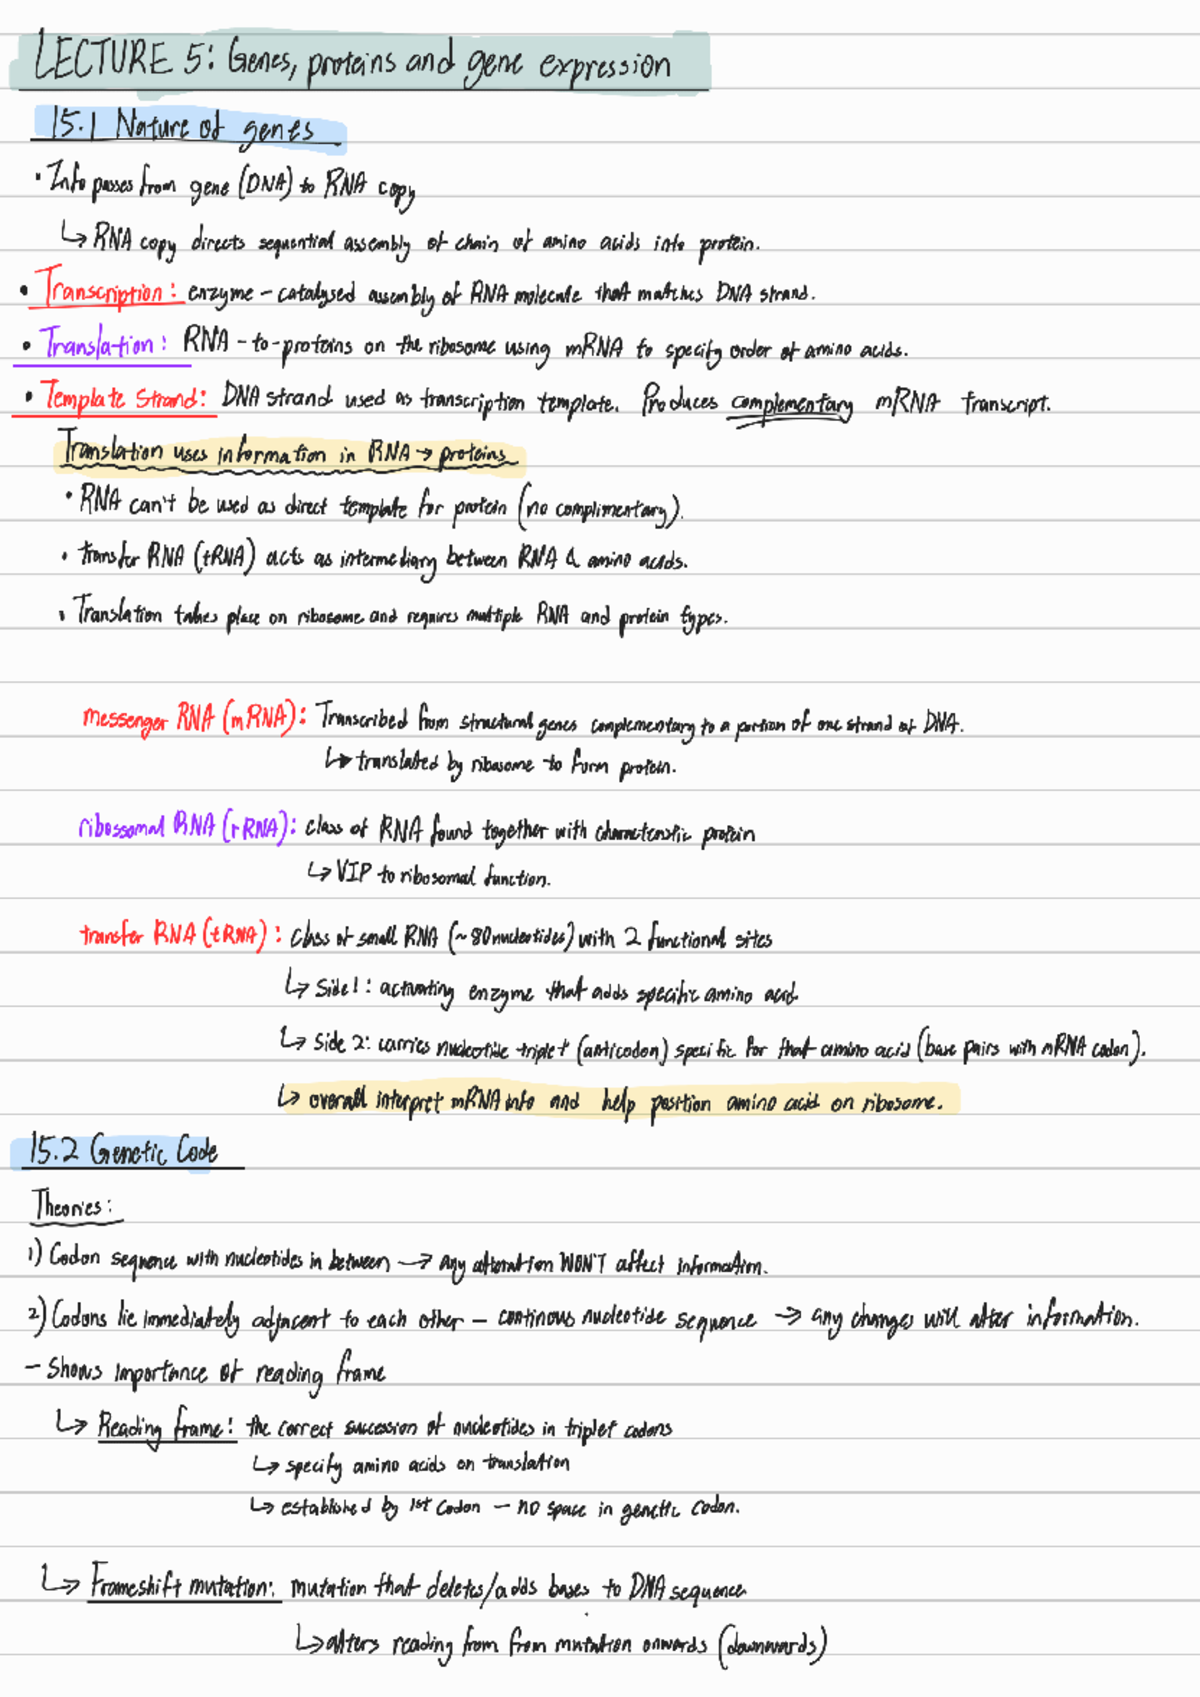 LECTURE 5: Genes, proteins and gene expression
15.1 Nature of genes
• Info passes from gene (DNA) to RNA copy
↳ RNA copy directs sequential assembly of chain of amino acids into protein.
• Transcription: enzyme - catalysed assembly of RNA molecule that matches DNA strand.
• Translation: RNA - to - proteins on the ribosome using mRNA to specify order of amino acids.
• Template Strand: DNA strand used as transcription template. Produces complementary mRNA transcript.
Translation uses information in RNA → proteins
• RNA can't be used as direct template for protein (no complimentary).
• transfer RNA (tRNA) acts as intermediary between RNA & amino acids.
• Translation takes place on ribosome and requires multiple RNA and protein types.
messenger RNA (mRNA): Transcribed from structural genes complementary to a portion of one strand of DNA.
↳ translated by ribosome to form protein.
ribossomal RNA (rRNA): class of RNA found together with characteristic protein
↳ VIP to ribosomal function.
transfer RNA (tRNA): class of small RNA (~80 nucleotides) with 2 functional sites
↳ Side 1: activating enzyme that adds specific amino acid.
↳ Side 2: carries nucleotide triplet (anticodon) specific for that amino acid (base pairs with mRNA codon).
↳ overall interpret mRNA info and help position amino acid on ribosome.
15.2 Genetic Code
Theories:
1) Codon sequence with nucleotides in between → any alteration WON'T affect information.
2) Codons lie immediately adjacent to each other - continous nucleotide sequence → any changes will alter information.
- Shows importance of reading frame
↳ Reading frame: the correct succession of nucleotides in triplet codons
↳ specify amino acids on translation
↳ established by 1st codon - no space in genetic codon.
↳ Frameshift mutation: mutation that deletes/adds bases to DNA sequence
↳ alters reading from from mutation onwards (downwards)